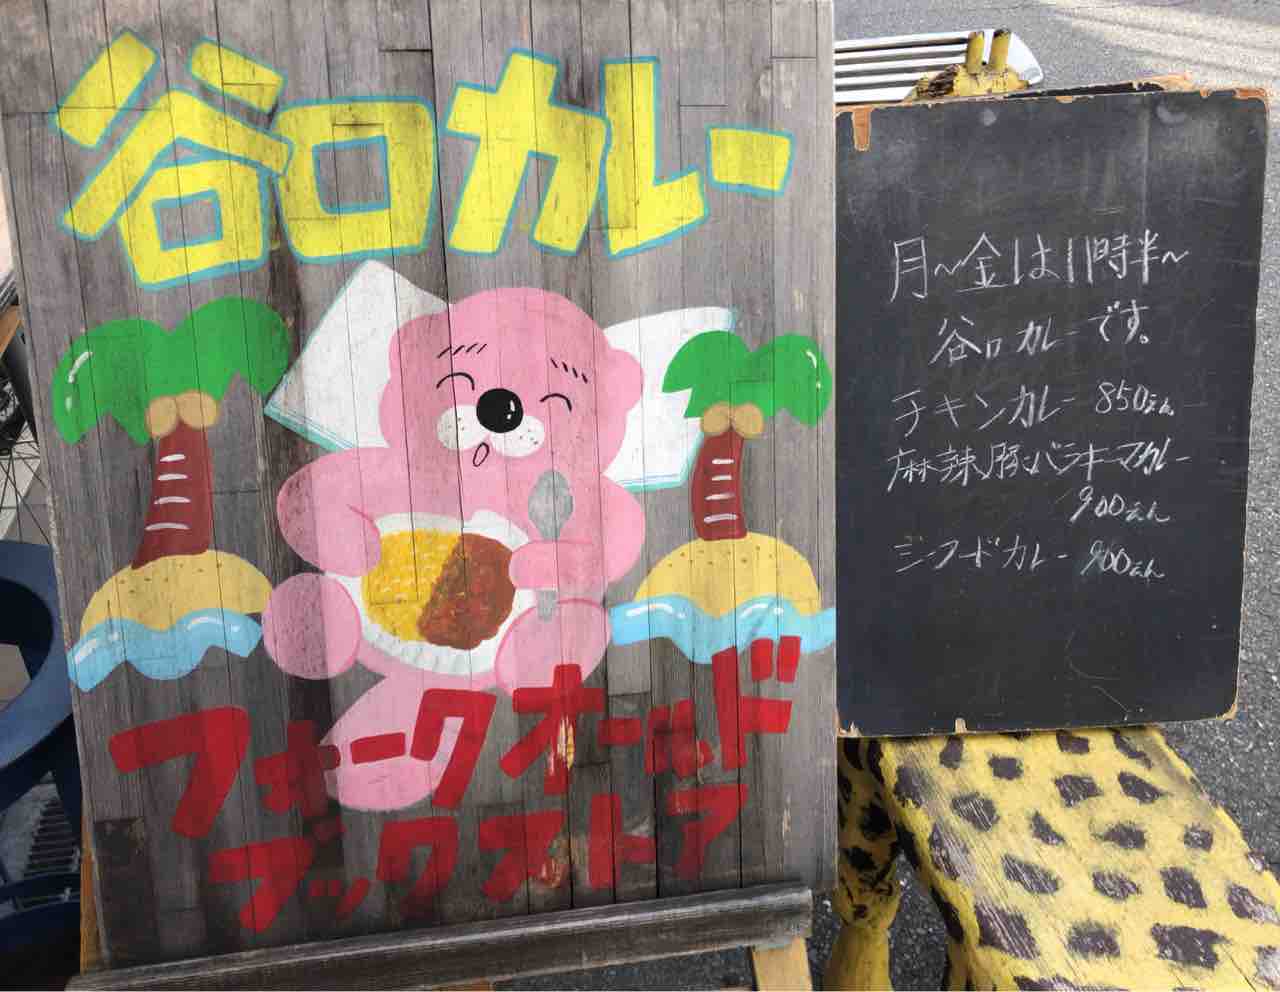 谷口カレー
フォークオールド
ブックストア
月～金は11時半～
谷口カレーです。
チキンカレー 850えん
麻辣豚バラキーマカレー
900えん
シーフードカレー 900えん